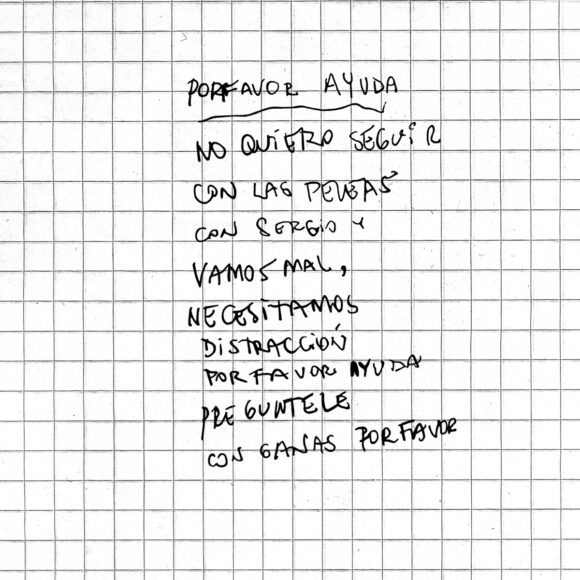 PORFAVOR AYUDA
NO QUIERO SEGUIR
CON LAS PELEAS
CON SERGIO Y
VAMOS MAL,
NECESITAMOS
DISTRACCIÓN
POR FAVOR AYUDA
PREGUNTELE
CON GANAS PORFAVOR